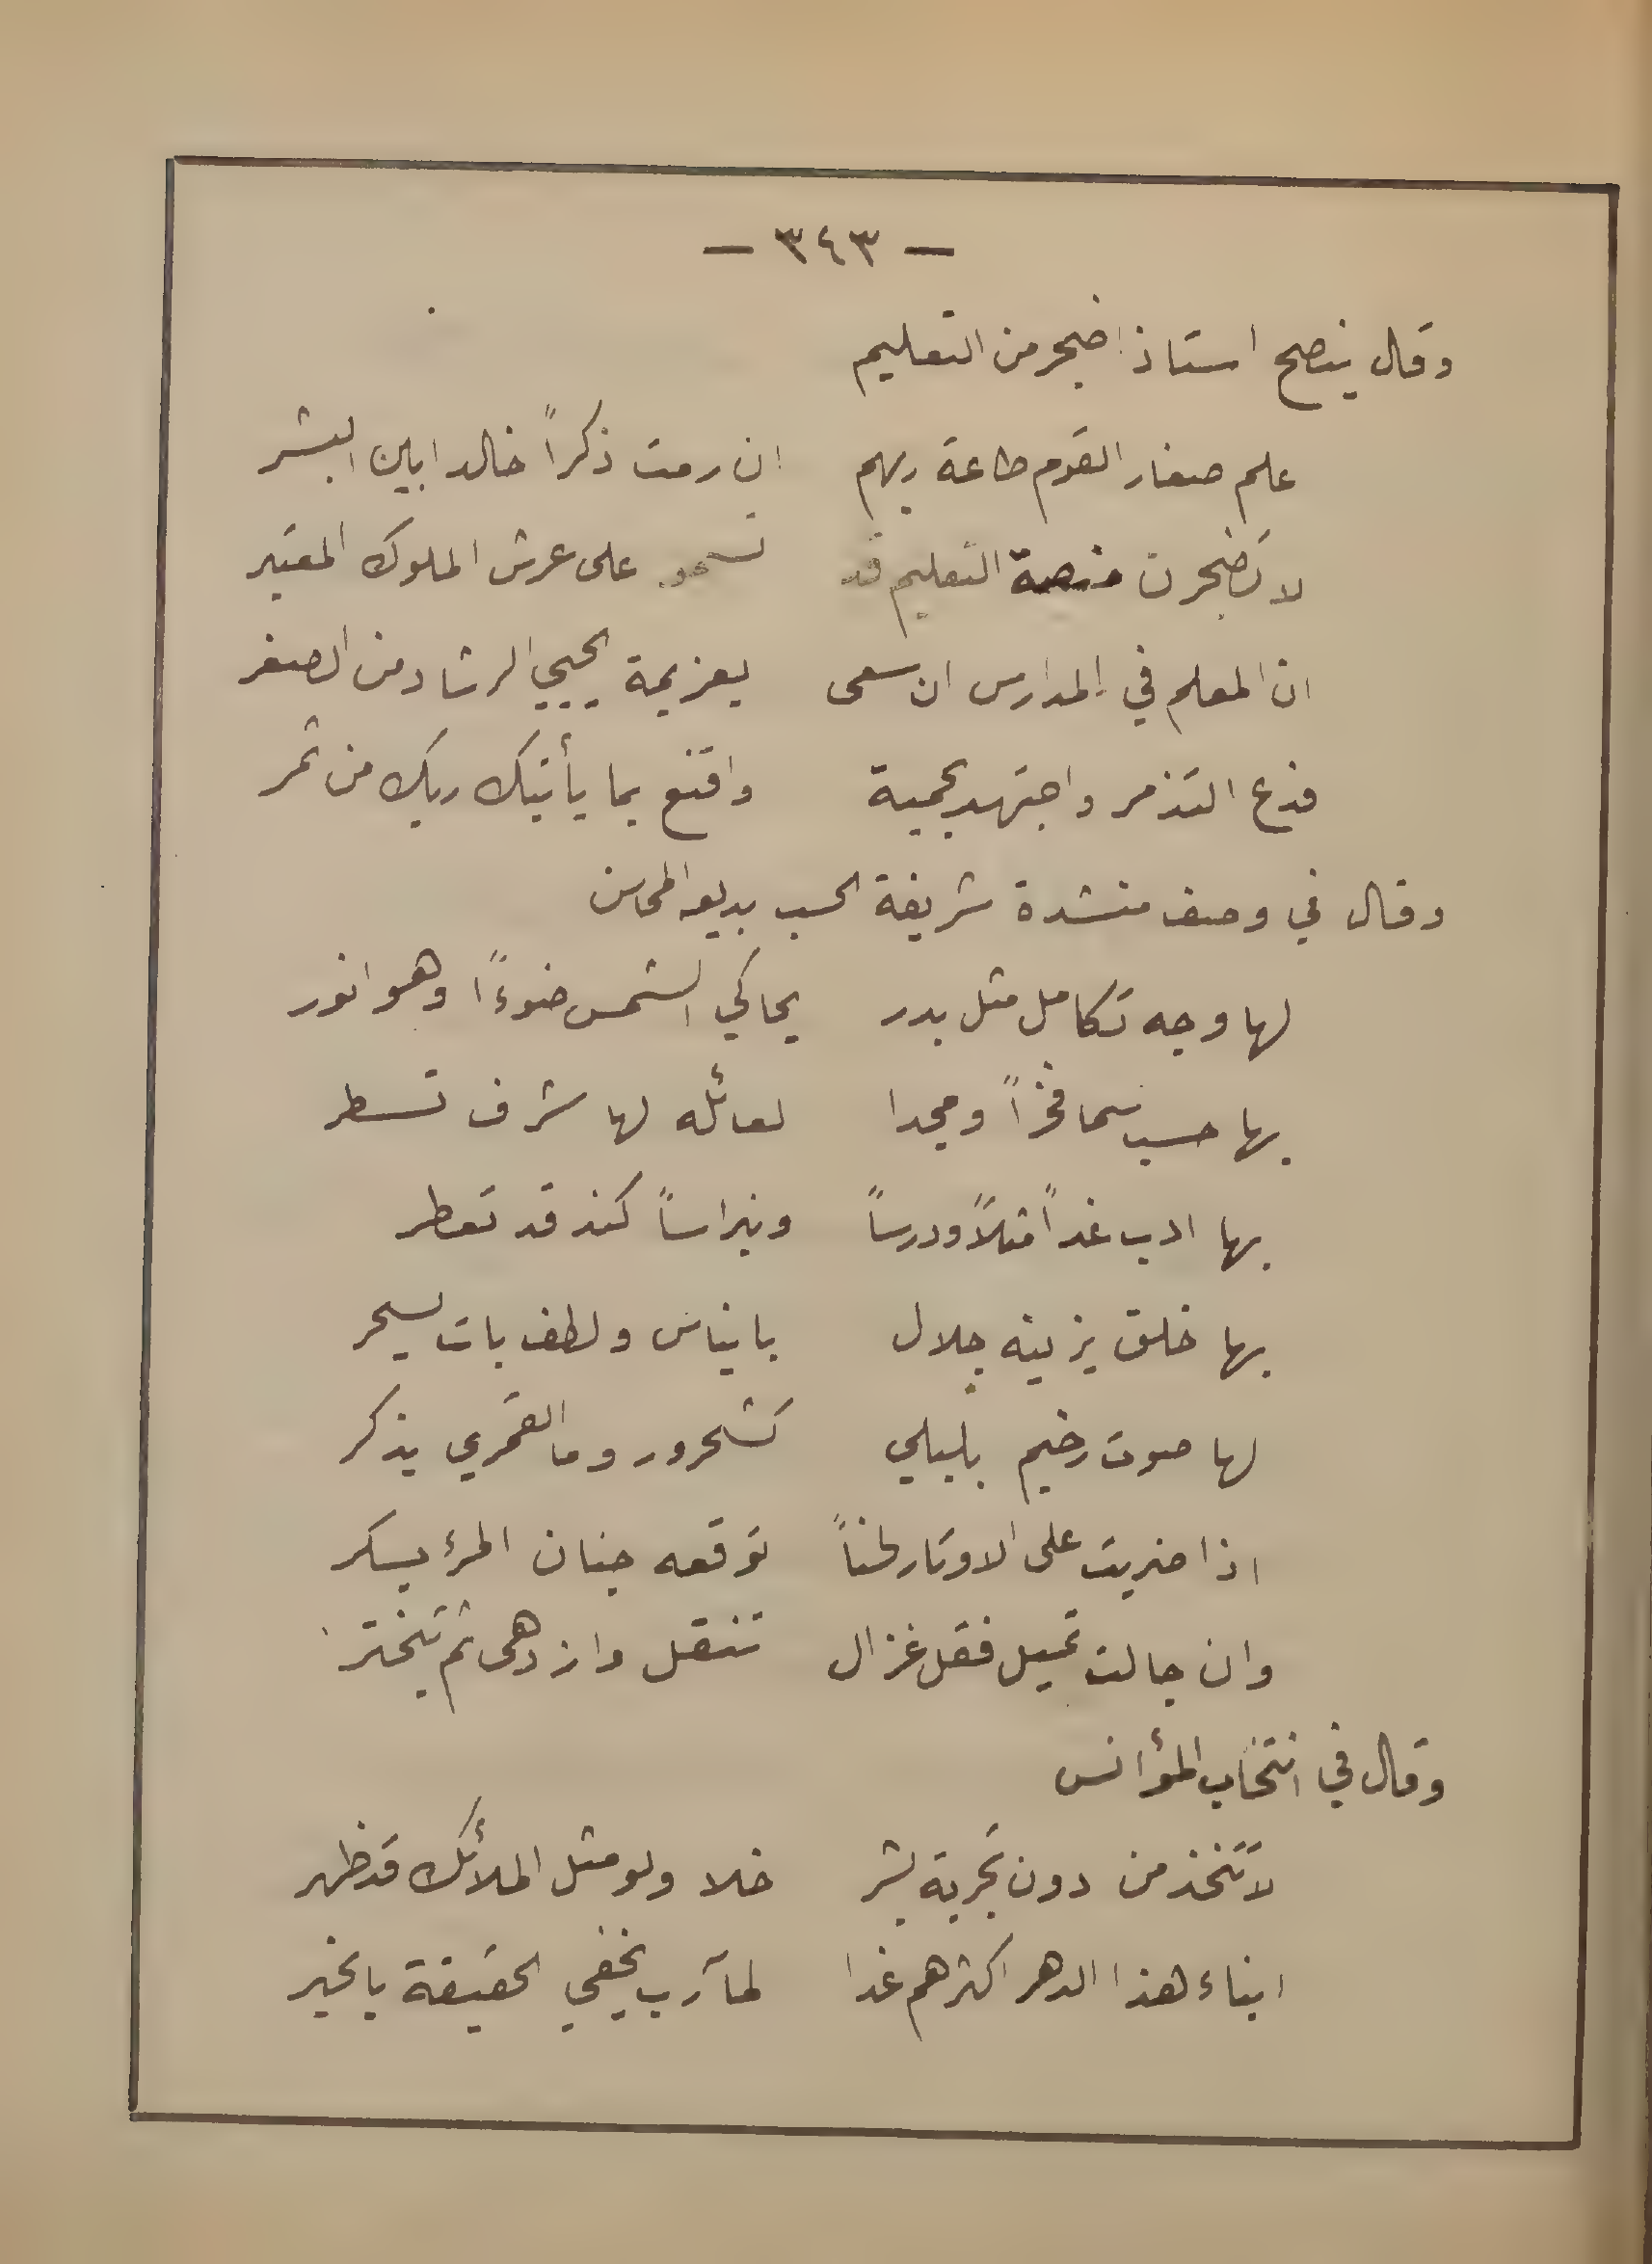 — ٣٤٣ —
وقال ينصح استاذا ضجر من التعليم
علم صغار القوم طاعة ربهم ان رمت ذكراً خالدا بين البشر
لا تضجرن منصة التعليم قد تسمو على عرش الملوك المعتبر
ان المعلم في المدارس ان سعى بعزيمة يحيي الرشاد من الصغر
فدع التذمر واجتهد بحمية واقنع بما يأتيك ربك من ثمر
وقال في وصف منشدة شريفة الحسب بديعه المحاسن
لها وجه تكامل مثل بدر يحاكي الشمس ضوءًا وهو انور
بها حسب سما فخراً ومجدا لعائله لها شرف تسطر
بها ادب غداً مثلاً ودرساً ونبراساً كند قد تعطر
بها خلق يزينه جلال بايناس ولطف بات يسحر
لها صوت رخيم بلبلي كشحرور وما القمري يذكر
اذا ضربت على الاوتار لحناً توقعه جنان المرء يسكر
وان جالت تميل فقل غزال تنقل وازدهى ثم تبختر
وقال في انتخاب المؤانس
لا تتخذ من دون تجربة بشر خلا ولو مثل الملائك قد ظهر
ابناء هذا الدهر اكثرهم غدا لمآرب يخفي الحقيقة بالخبر